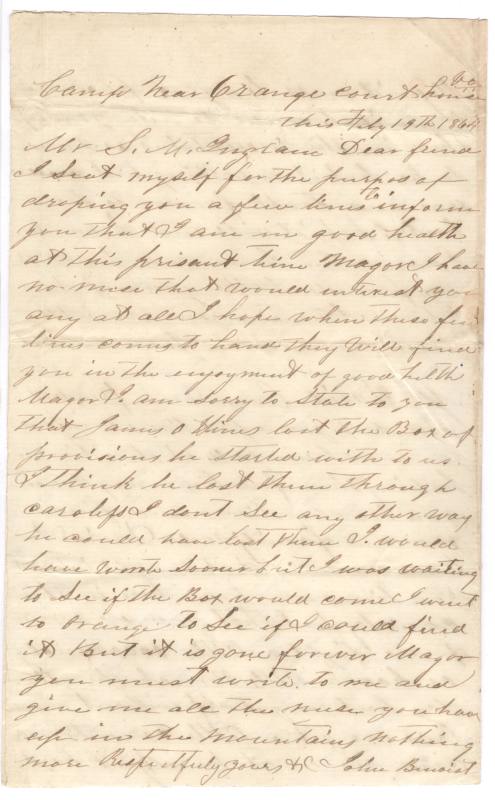 Camp Near Orange court house Va
this Feby 19th 1864
Mr S. M. Ingram Dear frend
I Seat myself for the purpos of
droping you a few lines to inform
you that I am in good health
at this prisant time Magor I have
no nuse that would intrest you
any at all I hope when these few
lines comes to hand they Will find
you in the enjoyment of good helth
Magor I am Sorry to State to you
that James O Hines lost the Box of
provisions he started with to us
I think he lost them through
carelefs I dont See any other way
he could have lost them I would
have wrote Sooner but I was waiting
to See if the Box would come I went
to orange to See if I could find
it But it is gone forever Magor
you must write to me and
give me all the nuse you have
up in the mountains nothing
more Respectfuly yours &c John Benoist